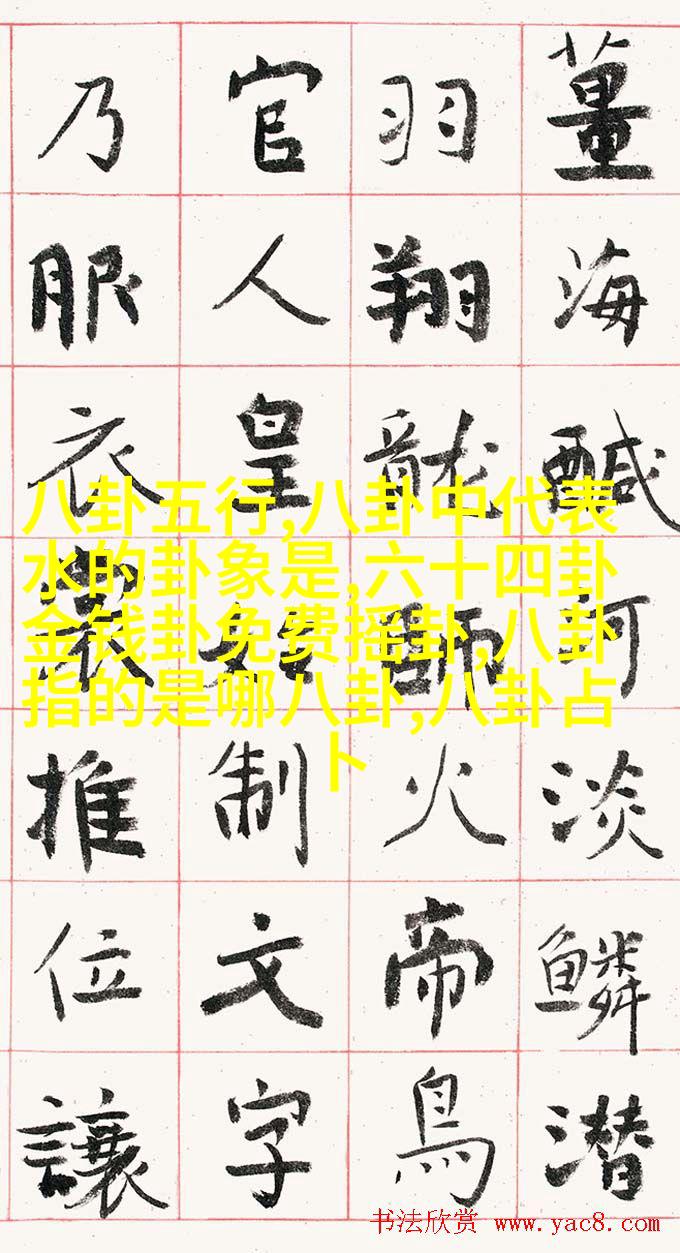 薑海醎河淡鳞潜
羽翔龍師火帝鳥
官人皇始制文字
乃服衣裳推位讓
八卦五行,八卦中代表
水的卦象是,六十四卦
金钱卦免费摇卦,八卦
指的是哪八卦,八卦占
卜
书法欣赏 www.yac8.com